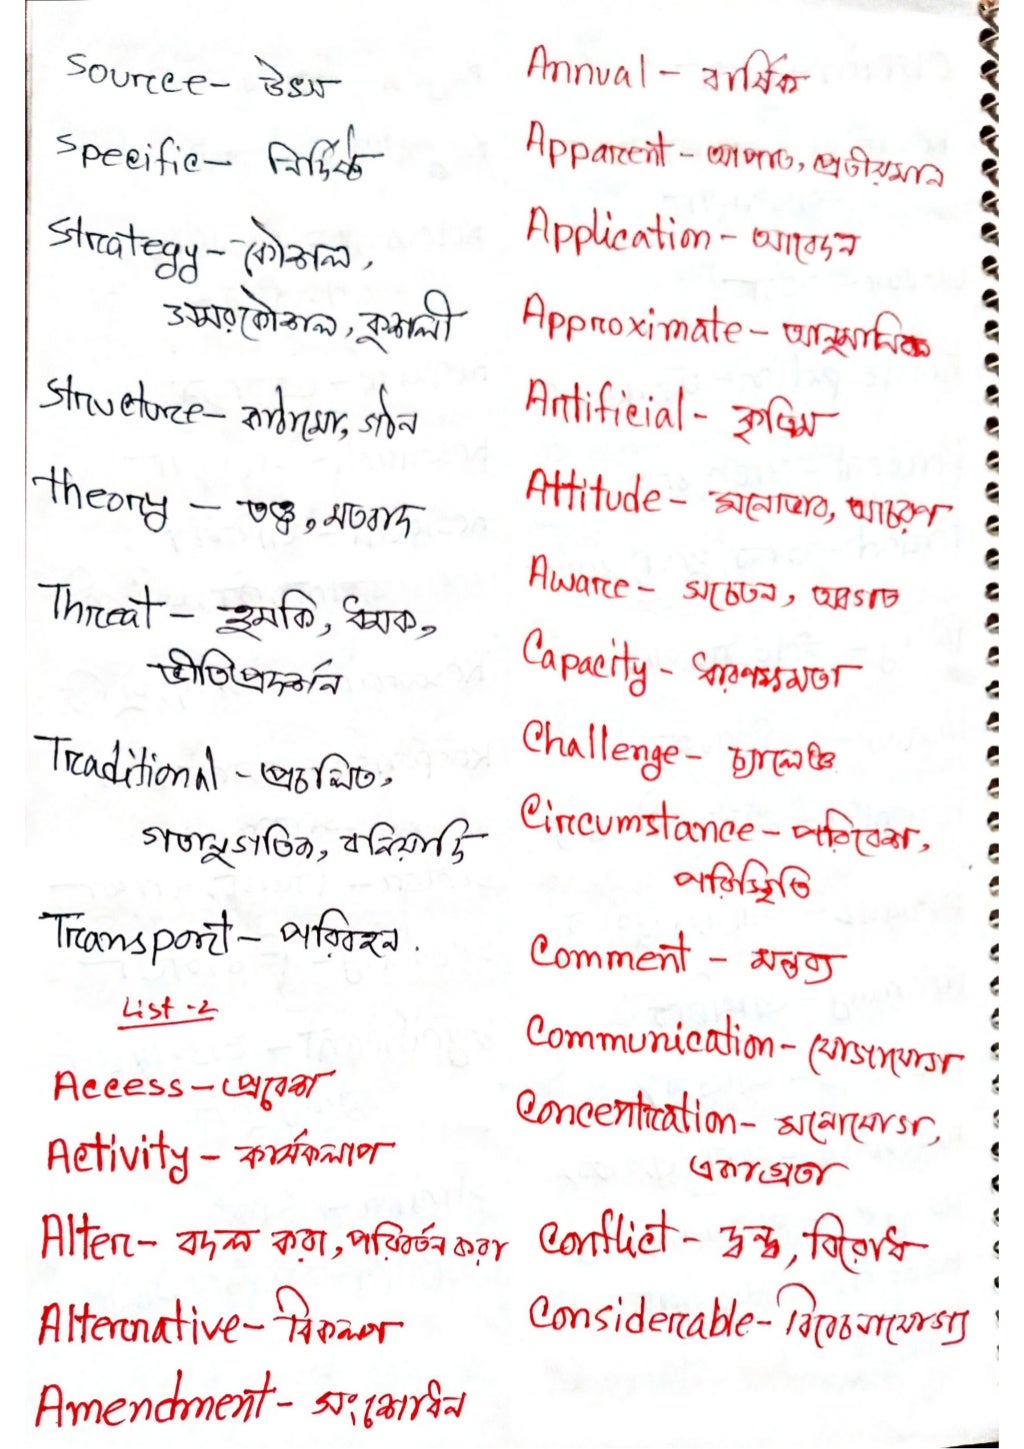 Source- উৎস
Specific- নির্দিষ্ট
Strategy- কৌশল,
সমরকৌশল, কুশলী
Structure- কাঠামো, গঠন
Theory - তত্ত্ব, মতবাদ
Threat - হুমকি, ধমক,
ভীতিপ্রদর্শন
Traditional - প্রচলিত,
গতানুগতিক, বনিয়াদি
Transport - পরিবহন.
List-2
Access - প্রবেশ
Activity - কার্যকলাপ
Alter- বদল করা, পরিবর্তন করা
Alternative- বিকল্প
Amendment- সংশোধন
Annual - বার্ষিক
Apparent - আপাত, প্রতীয়মান
Application - আবেদন
Approximate - আনুমানিক
Artificial - কৃত্রিম
Attitude - মনোভাব, আচরণ
Aware - সচেতন, অবগত
Capacity - ধারণক্ষমতা
Challenge - চ্যালেঞ্জ
Circumstance - পরিবেশ,
পরিস্থিতি
Comment - মন্তব্য
Communication - যোগাযোগ
Concentration- মনোযোগ,
একাগ্রতা
Conflict - দ্বন্দ্ব, বিরোধ
Considerable- বিবেচনাযোগ্য